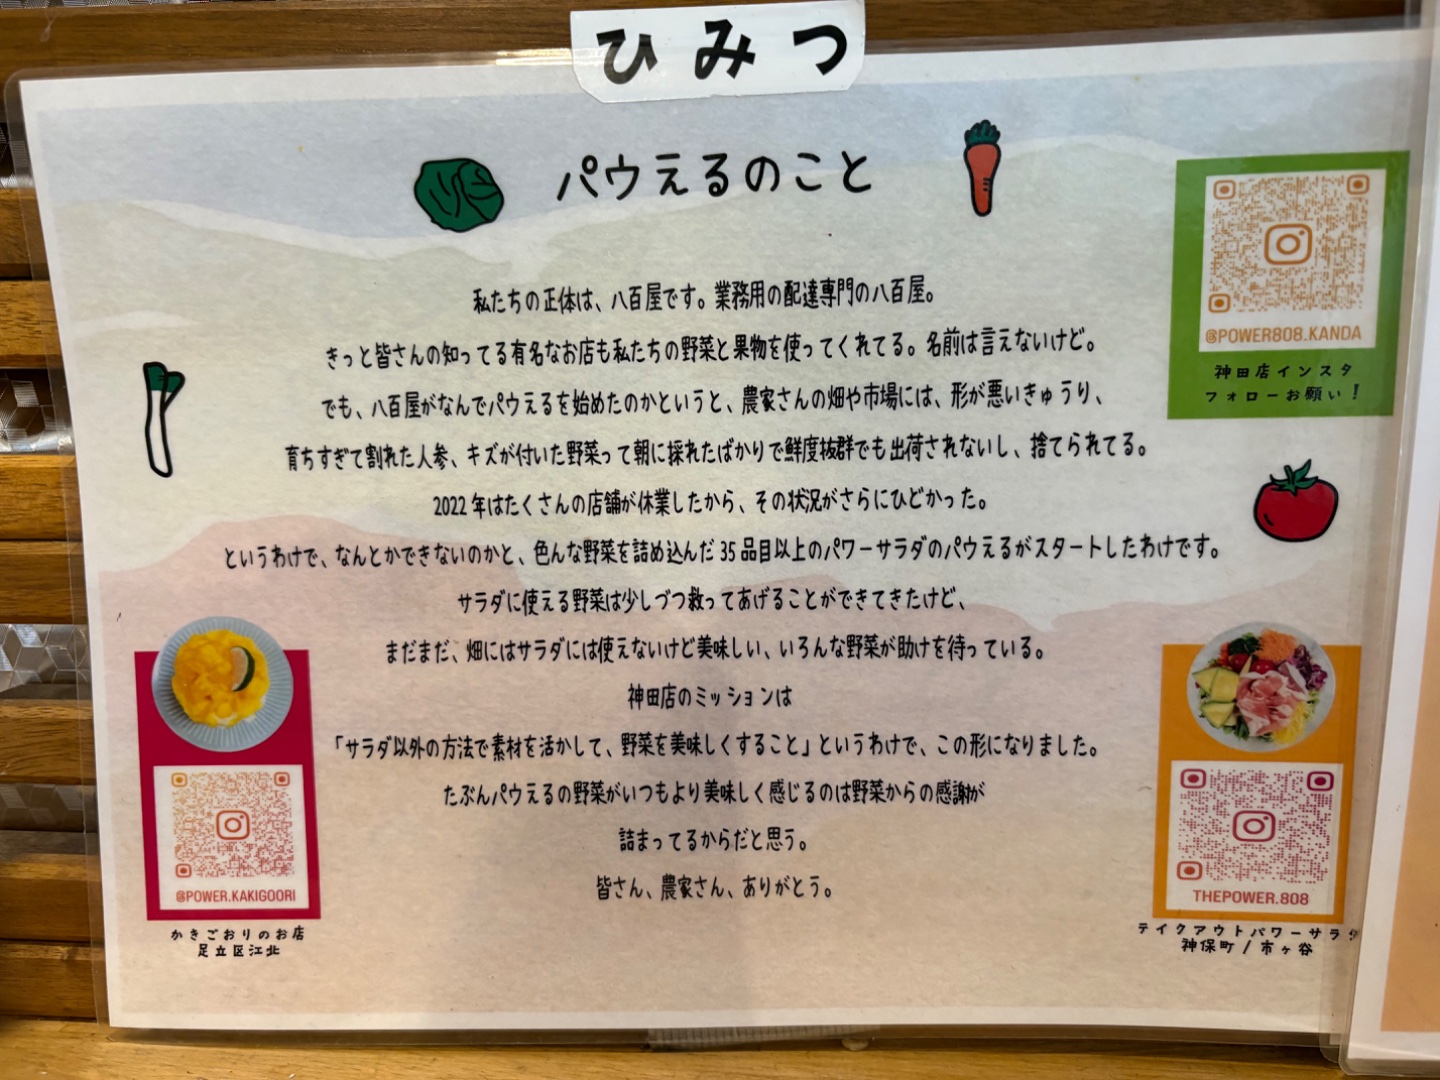 ひみつ
パウえるのこと
私たちの正体は、八百屋です。業務用の配達専門の八百屋。
きっと皆さんの知ってる有名なお店も私たちの野菜と果物を使ってくれてる。名前は言えないけど。
でも、八百屋がなんでパウえるを始めたのかというと、農家さんの畑や市場には、形が悪いきゅうり、
育ちすぎて割れた人参、キズが付いた野菜って朝に採れたばかりで鮮度抜群でも出荷されないし、捨てられてる。
2022年はたくさんの店舗が休業したから、その状況がさらにひどかった。
というわけで、なんとかできないのかと、色んな野菜を詰め込んだ35品目以上のパワーサラダのパウえるがスタートしたわけです。
サラダに使える野菜は少しづつ救ってあげることができてきたけど、
まだまだ、畑にはサラダには使えないけど美味しい、いろんな野菜が助けを待っている。
神田店のミッションは
「サラダ以外の方法で素材を活かして、野菜を美味しくすること」というわけで、この形になりました。
たぶんパウえるの野菜がいつもより美味しく感じるのは野菜からの感謝が
詰まってるからだと思う。
皆さん、農家さん、ありがとう。
@POWER808.KANDA
神田店インスタ
フォローお願い!
@POWER.KAKIGOORI
かきごおりのお店
足立区江北
THEPOWER.808
テイクアウトパワーサラダ
神保町/市ヶ谷